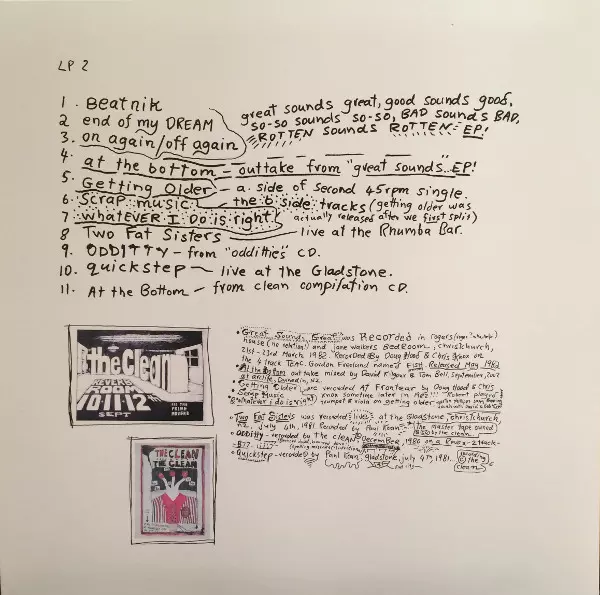 LP 2
1. Beatnik
2 end of my DREAM
3. on again/off again
great sounds great, good sounds good,
so-so sounds so-so, BAD sounds BAD,
ROTTEN sounds ROTTEN EP!
4. at the bottom - outtake from "great sounds.. EP!
5. Getting Older - a side of second 45rpm single.
6. Scrap music - the b side tracks (getting older was
7. whatever I do is right actually released after we first split)
8 Two Fat Sisters - live at the Rhumba Bar.
9. ODDITTY - from "oddities" CD.
10. quickstep - live at the Gladstone.
11. At the Bottom - from clean compilation CD.
the Clean
10 11 12
SEPT
THE CLEAN
THE CLEAN
• "Great Sounds Great" was Recorded in rogers
house (no relation!) and Jane walkers BedRoom, christchurch,
21st-23rd March 1982. Recorded By Doug Hood & Chris Knox on
the 4 track TEAC. Gordon names Released May 1982
• At the Bottom outtake mixed by David Kilgour & Tom Bell September, 2002
Dunedin, NZ.
• Getting Older were recorded AT by Doug Hood & Chris
Scrap Music Knox sometime later in "Robert playing
& whatever i do is right trumpet & viola on getting older
• Two Fat Sisters was recorded lives at the Gladstone, christchurch,
N.Z., July 4th, 1981 Recorded by Paul Kean - the master tape owned
• ODDITTY - recorded by the CLEAN December, 1980 on a Revox-2track-
• Quickstep - recorded by Paul Kean, gladstone, july 4th, 1981...